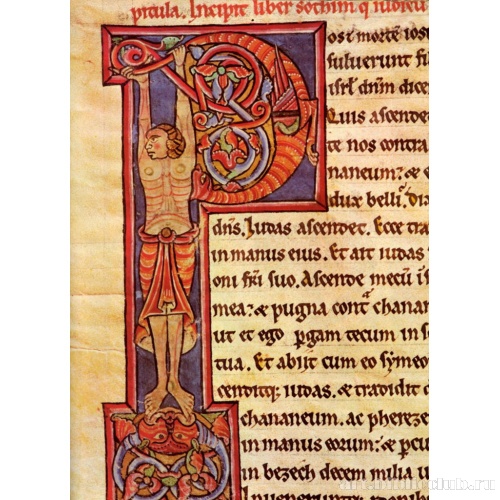 picula. Incipit liber sothim q iudicu
ost morte iosu
suluerunt fi
isrl dnm dice
Quis ascendet
te nos contra
naneum: & e
dux belli. Di
dns. Iudas ascendet. Ecce tra
in manus eius. Et ait iudas
oni fri suo. Ascende mecu i
mea: & pugna cont chanan
ut et ego pgam tecum in s
tua. Et abiit cum eo symeo
cenditq; iudas. & tradidit
chananeum. ac pherez
in manus eorum: & pcu
in bezech decem milia u
Inuenerunt
art.minicclub.ru